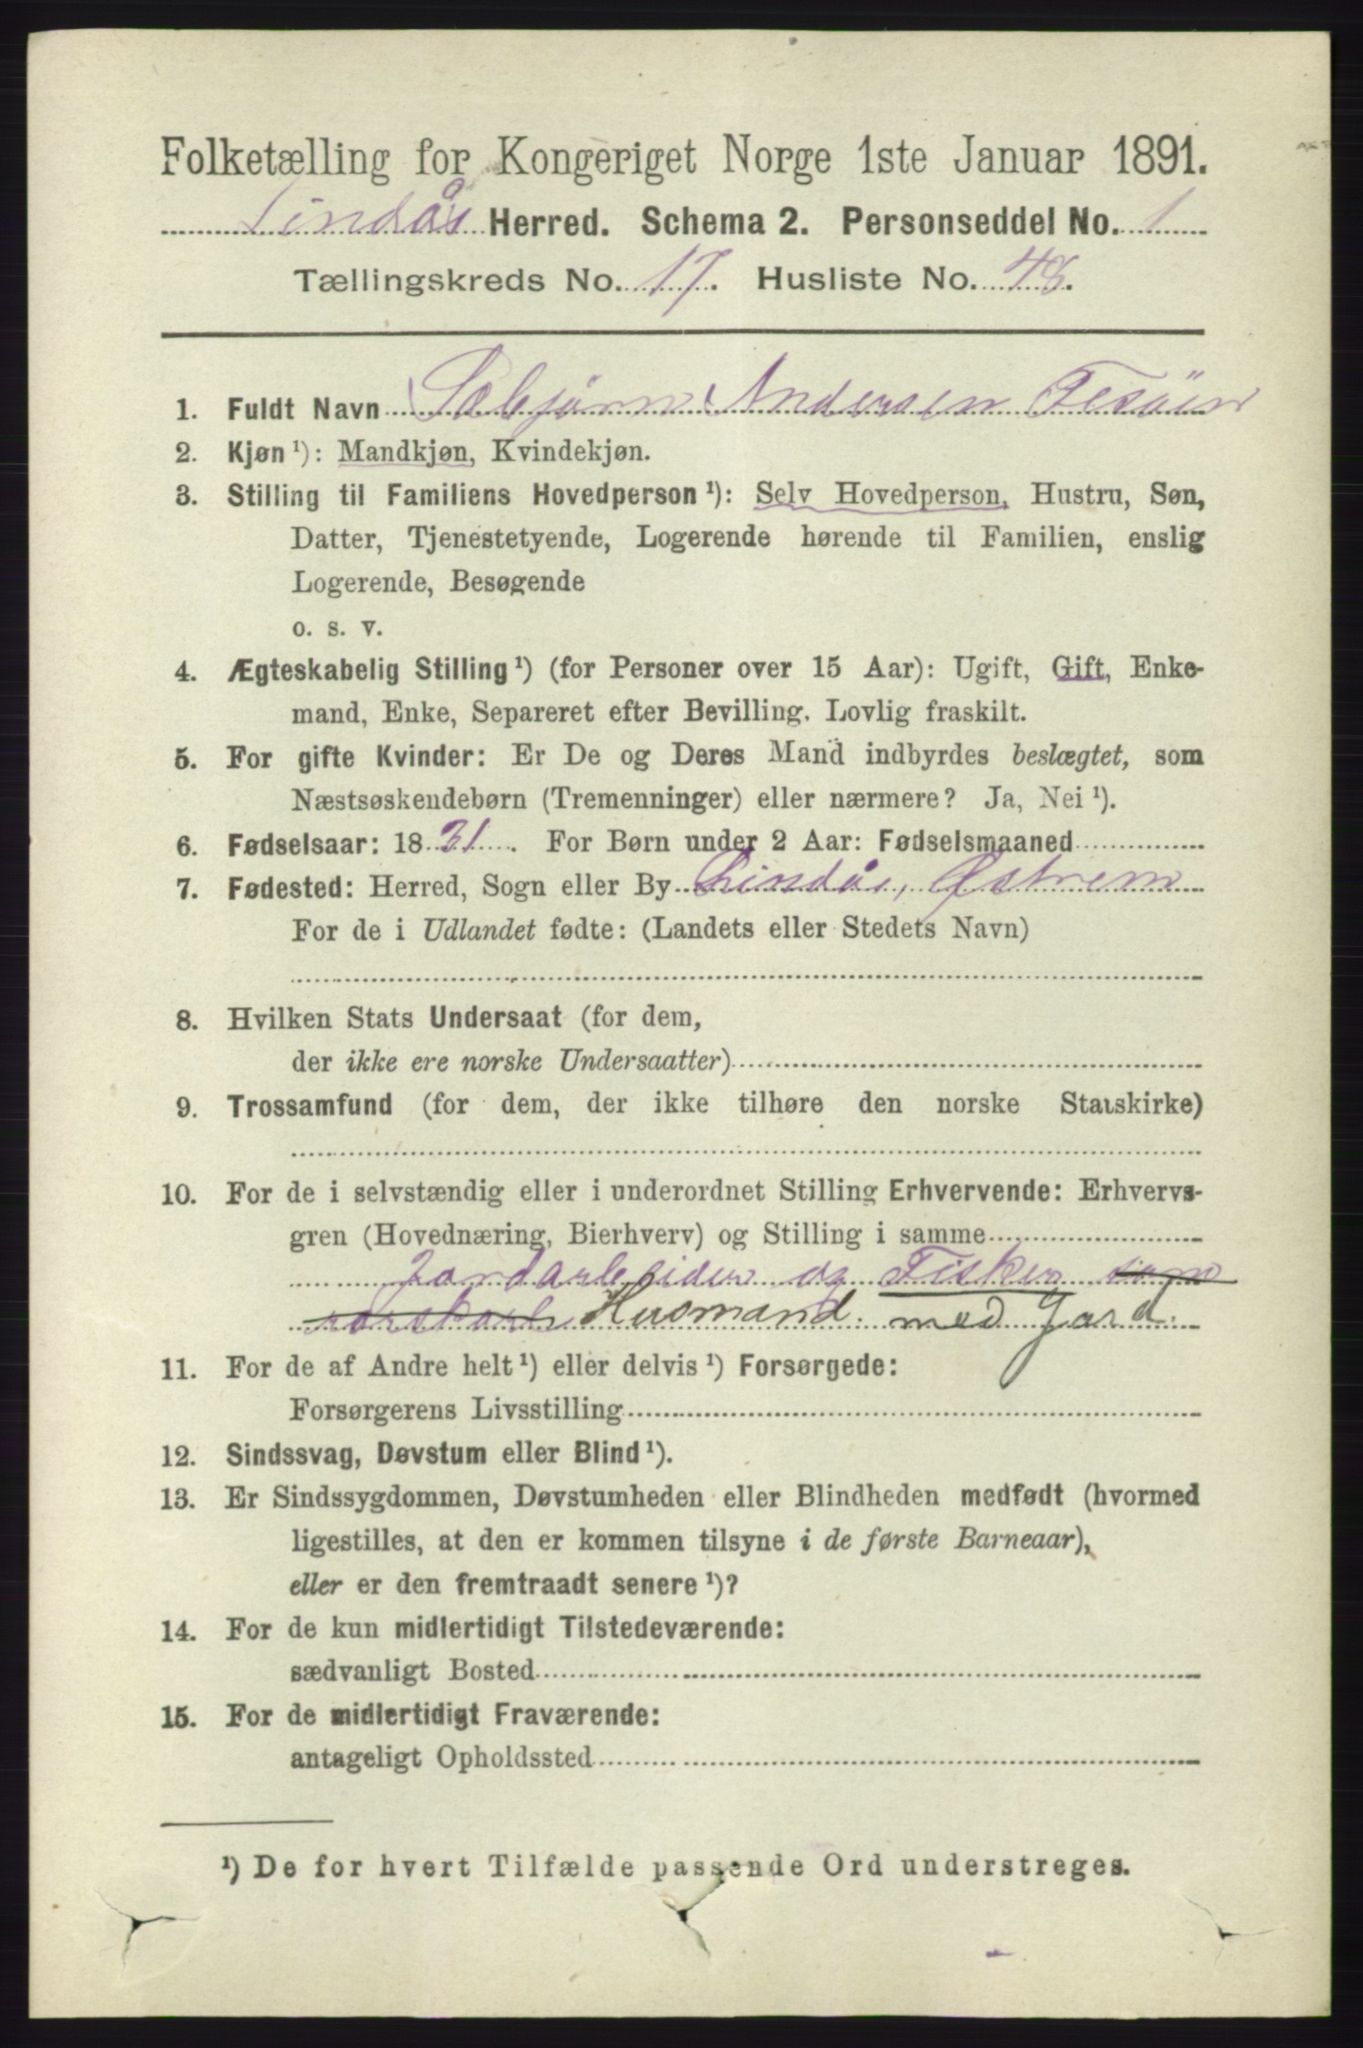 Folketælling for Kongeriget Norge 1ste Januar 1891.
Lindås Herred. Schema 2. Personseddel No. 1
Tællingskreds No. 17. Husliste No. 48.
1. Fuldt Navn Sæbjørn Andersen Fesöen
2. Kjøn ¹): Mandkjøn, Kvindekjøn.
3. Stilling til Familiens Hovedperson ¹): Selv Hovedperson, Hustru, Søn,
Datter, Tjenestetyende, Logerende hørende til Familien, enslig
Logerende, Besøgende
o. s. v.
4. Ægteskabelig Stilling ¹) (for Personer over 15 Aar): Ugift, Gift, Enke-
mand, Enke, Separeret efter Bevilling. Lovlig fraskilt.
5. For gifte Kvinder: Er De og Deres Mand indbyrdes beslægtet, som
Næstsøskendebørn (Tremenninger) eller nærmere? Ja, Nei ¹).
6. Fødselsaar: 1831. For Børn under 2 Aar: Fødselsmaaned
7. Fødested: Herred, Sogn eller By Lindås, Østrem
For de i Udlandet fødte: (Landets eller Stedets Navn)
8. Hvilken Stats Undersaat (for dem,
der ikke ere norske Undersaatter)
9. Trossamfund (for dem, der ikke tilhøre den norske Statskirke)
10. For de i selvstændig eller i underordnet Stilling Erhvervende: Erhvervs-
gren (Hovednæring, Bierhverv) og Stilling i samme
Jordarbeider og Fisker som
Husmand. med Jord.
11. For de af Andre helt ¹) eller delvis ¹) Forsørgede:
Forsørgerens Livsstilling
12. Sindssvag, Døvstum eller Blind ¹).
13. Er Sindssygdommen, Døvstumheden eller Blindheden medfødt (hvormed
ligestilles, at den er kommen tilsyne i de første Barneaar),
eller er den fremtraadt senere ¹)?
14. For de kun midlertidigt Tilstedeværende:
sædvanligt Bosted
15. For de midlertidigt Fraværende:
antageligt Opholdssted
¹) De for hvert Tilfælde passende Ord understreges.